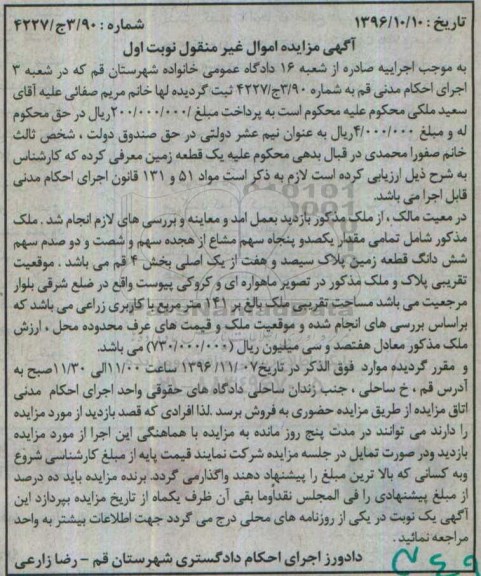 تاریخ : ۱۳۹۶/۱۰/۱۰ شماره : ۳/۹۰ج/۴۲۲۷
آگهی مزایده اموال غیر منقول نوبت اول
به موجب اجراییه صادره از شعبه ۱۶ دادگاه عمومی خانواده شهرستان قم که در شعبه ۳
اجرای احکام مدنی قم به شماره ۳/۹۰ج/۴۲۲۷ ثبت گردیده لها خانم مریم صفائی علیه آقای
سعید ملکی محکوم علیه محکوم است به پرداخت مبلغ /۲۰۰/۰۰۰/۰۰۰ریال در حق محکوم
له و مبلغ ۴/۰۰۰/۰۰۰ریال به عنوان نیم عشر دولتی در حق صندوق دولت ، شخص ثالث
خانم صفورا محمدی در قبال بدهی محکوم علیه یک قطعه زمین معرفی کرده که کارشناس
به شرح ذیل ارزیابی کرده است لازم به ذکر است مواد ۵۱ و ۱۳۱ قانون اجرای احکام مدنی
قابل اجرا می باشد.
در معیت مالک ، از ملک مذکور بازدید بعمل آمد و معاینه و بررسی های لازم انجام شد . ملک
مذکور شامل تمامی مقدار یکصدو پنجاه سهم مشاع از هجده سهم و شصت و دو صدم سهم
شش دانگ قطعه زمین پلاک سیصد و هفت از یک اصلی بخش ۴ قم می باشد . موقعیت
تقریبی پلاک و ملک مذکور در تصویر ماهواره ای و کروکی پیوست واقع در ضلع شرقی بلوار
مرجعیت می باشد مساحت تقریبی ملک بالغ بر ۱۴۱ متر مربع با کاربری زراعی می باشد که
براساس بررسی های انجام شده و موقعیت ملک و قیمت های عرف محدوده محل ، ارزش
ملک مذکور معادل هفتصد و سی میلیون ریال (۷۳۰/۰۰۰/۰۰۰) می باشد.
و مقرر گردیده موارد فوق الذکر در تاریخ۱۳۹۶/۱۱/۰۷ ساعت ۱۱/۰۰الی ۱۱/۳۰صبح به
آدرس قم ، خ ساحلی ، جنب زندان ساحلی دادگاه های حقوقی واحد اجرای احکام مدنی
اتاق مزایده از طریق مزایده حضوری به فروش برسد .لذا افرادی که قصد بازدید از مورد مزایده
را دارند می توانند در مدت پنج روز مانده به مزایده با هماهنگی این اجرا از مورد مزایده
بازدید ودر صورت تمایل در جلسه مزایده شرکت نمایند قیمت پایه از مبلغ کارشناسی شروع
وبه کسانی که بالا ترین مبلغ را پیشنهاد دهند واگذارمی گردد. برنده مزایده باید ده درصد
از مبلغ پیشنهادی را فی المجلس نقداًوما بقی آن ظرف یکماه از تاریخ مزایده بپردازد این
آگهی یک نوبت در یکی از روزنامه های محلی درج می گردد جهت اطلاعات بیشتر به واحد
مراجعه نمائید .
دادورز اجرای احکام دادگستری شهرستان قم – رضا زارعی